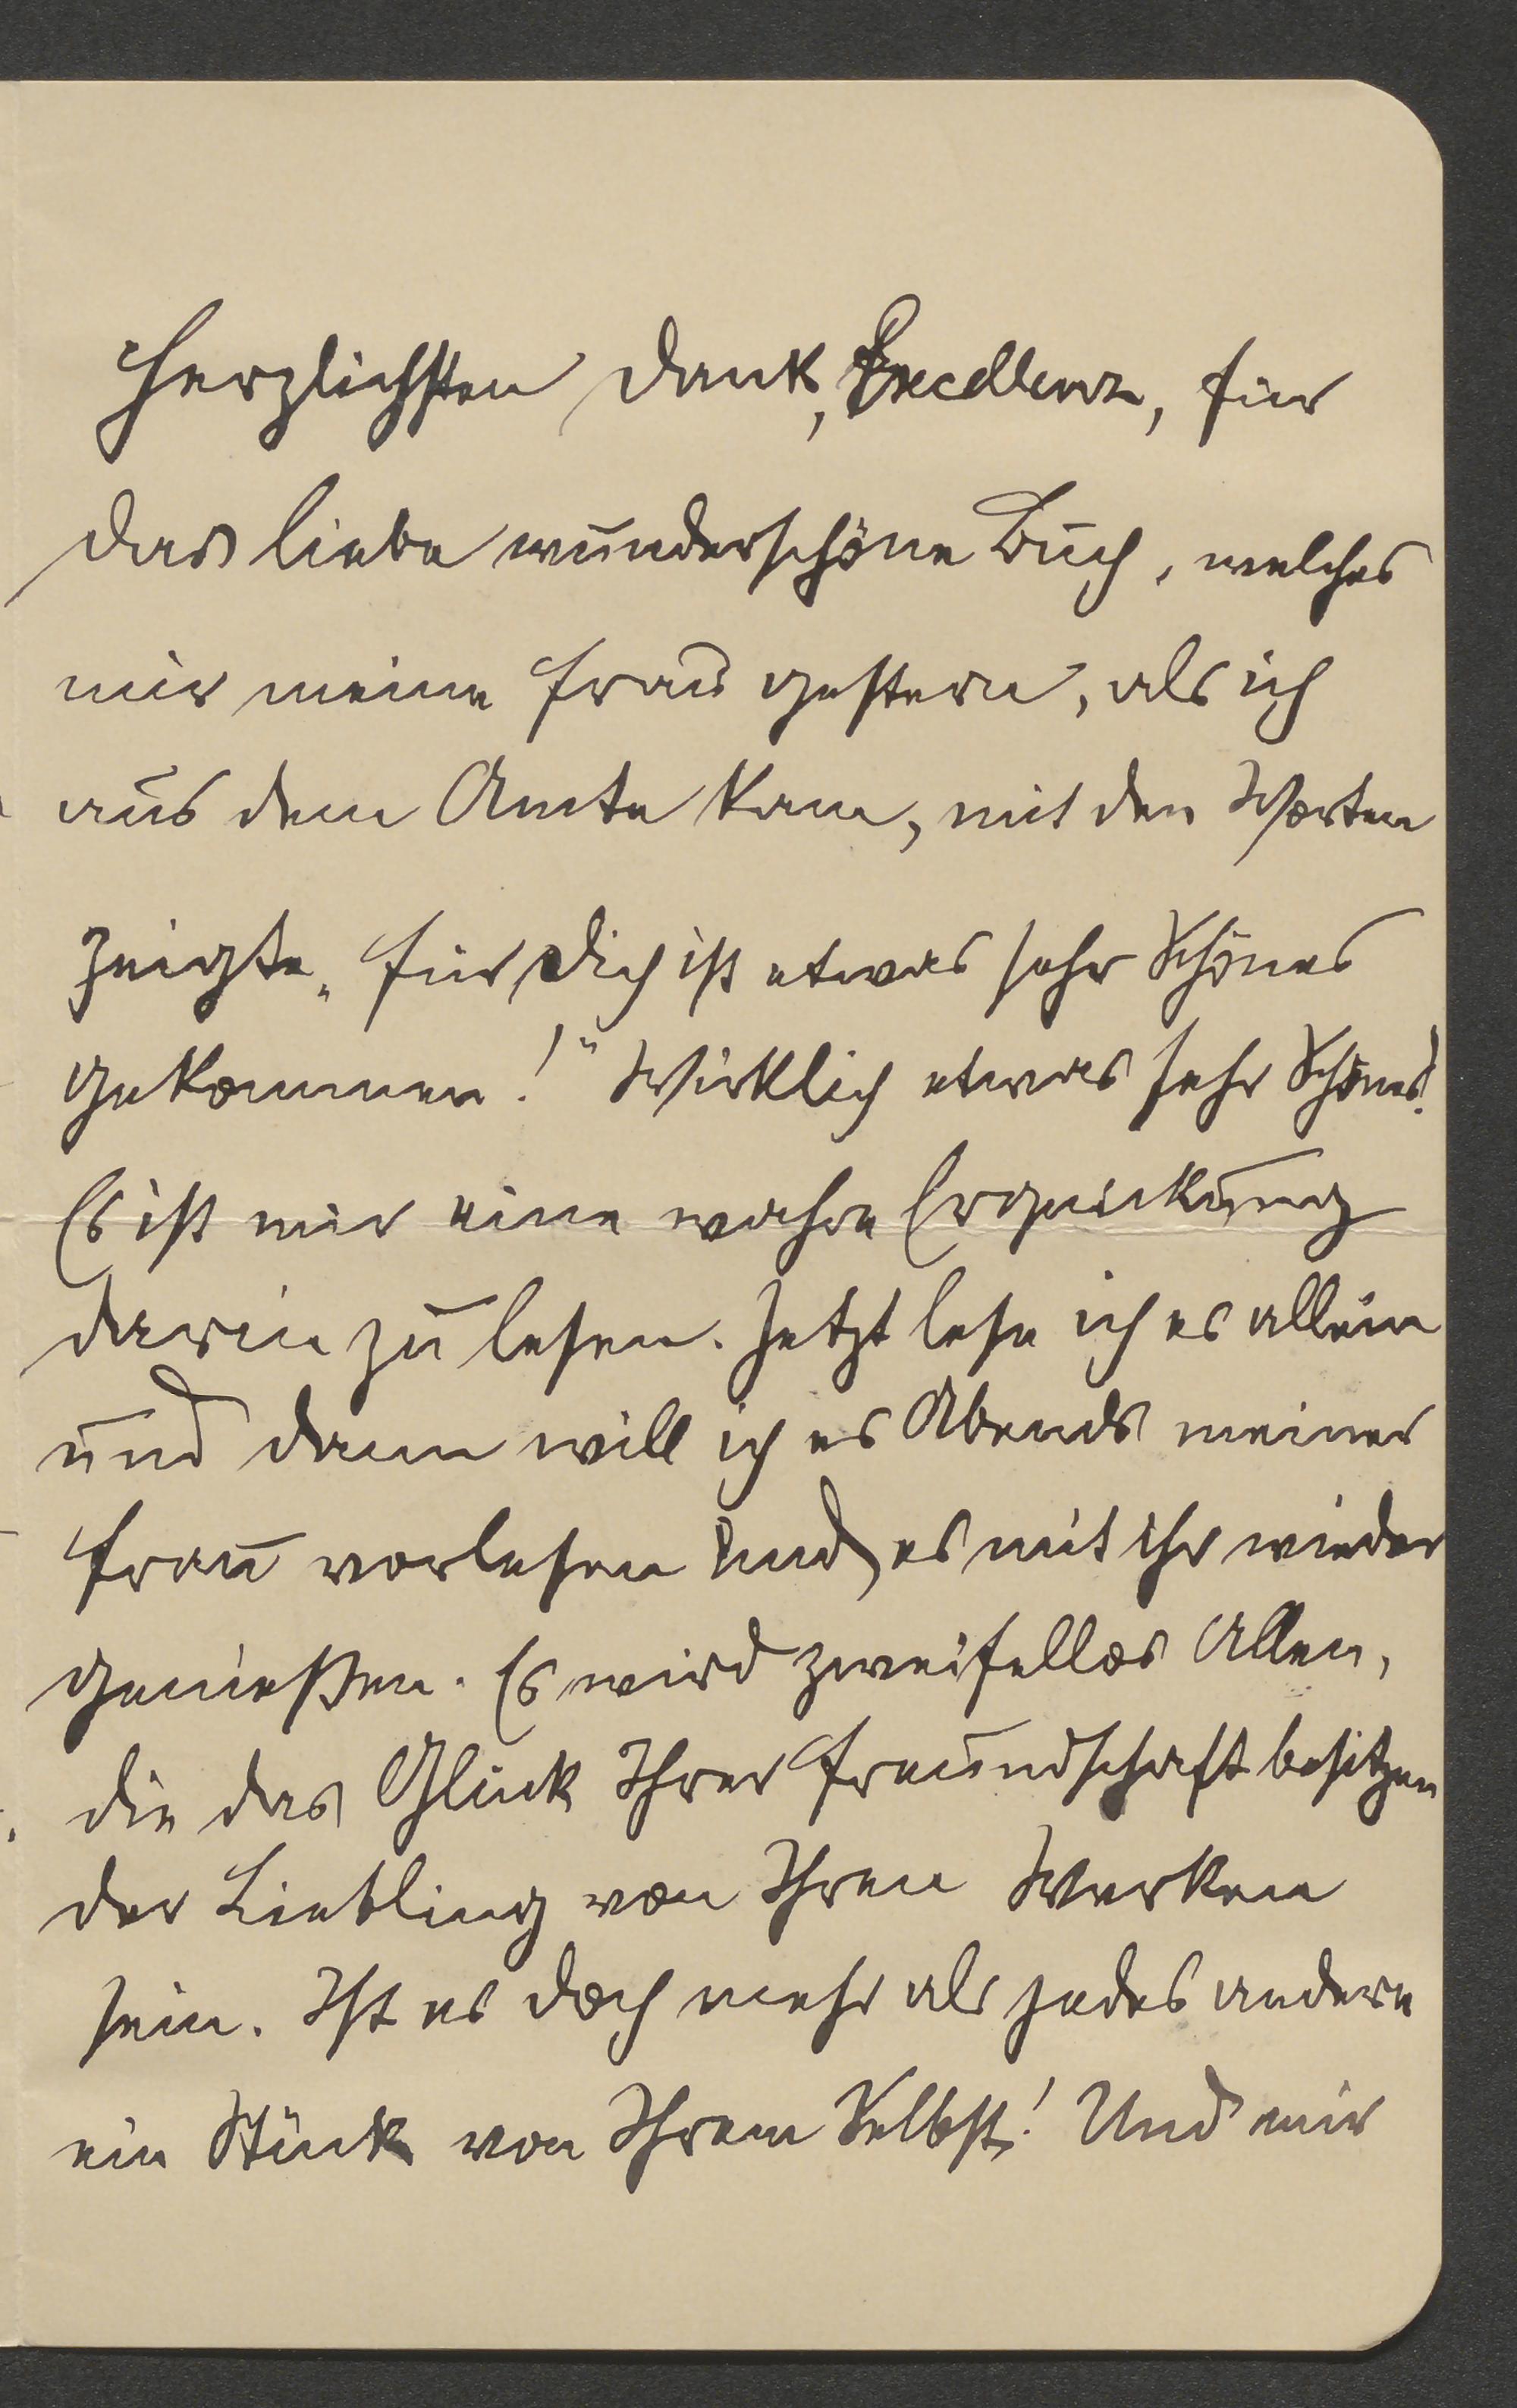 Herzlichsten Dank, Excellenz, für
das liebe wunderschöne Buch, welches
mir meine Frau gestern, als ich
aus dem Amte kam, mit den Worten
zeigte „Für Dich ist etwas sehr Schönes
gekommen!“ Wirklich etwas sehr Schönes!
Es ist mir eine wahre Erquickung
darin zu lesen. Jetzt lese ich es allein
und dann will ich es Abends meiner
Frau vorlesen und es mit ihr wieder
genießen. Es wird zweifellos Allen,
die das Glück Ihrer Freundschaft besitzen
der Liebling von Ihren Werken
sein. Ist es doch mehr als jedes andere
ein Stück von Ihrem Selbst! Und mir